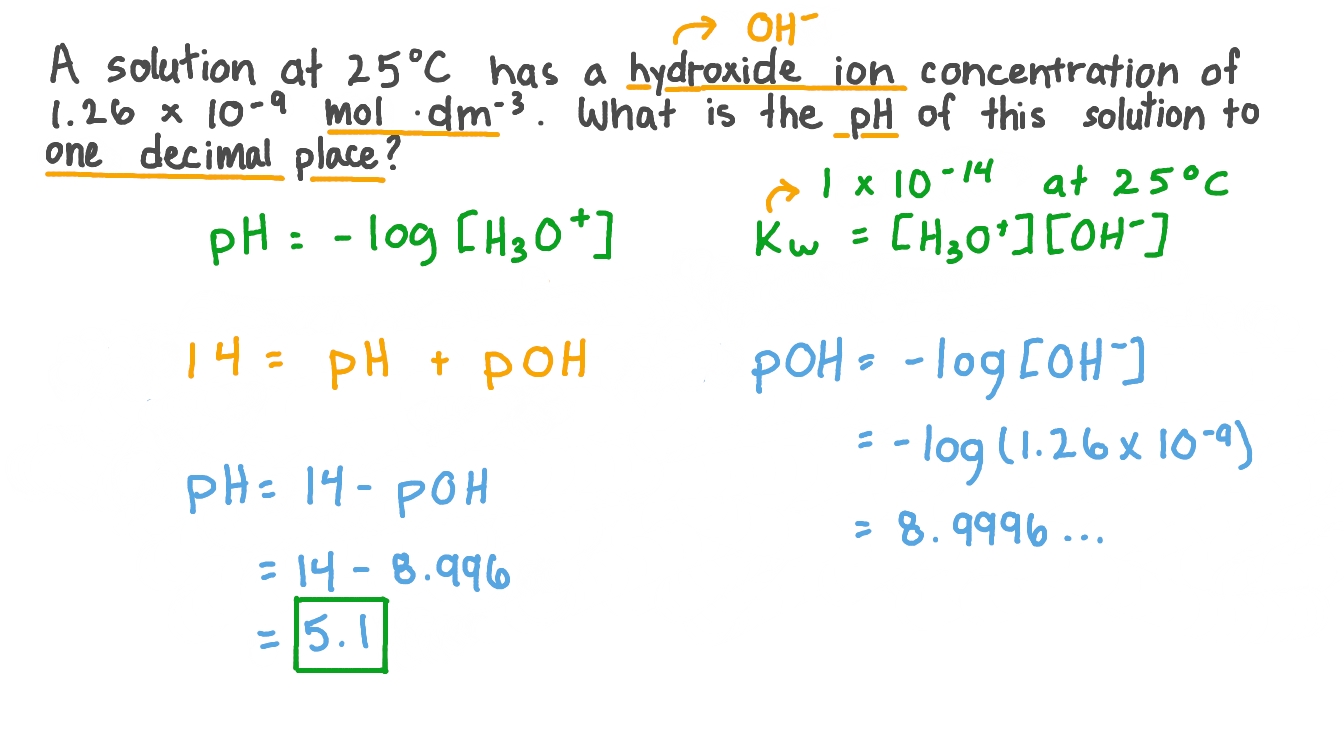 OH⁻
A solution at 25°C has a hydroxide ion concentration of
1.26 × 10⁻⁹ mol ·dm⁻³. What is the pH of this solution to
one decimal place?
1 × 10⁻¹⁴ at 25°C
pH = -log [H₃O⁺]
Kw = [H₃O⁺][OH⁻]
14 = pH + pOH
pOH = -log [OH⁻]
= -log (1.26 × 10⁻⁹)
= 8.9996 ...
pH = 14 - pOH
= 14 - 8.996
= 5.1